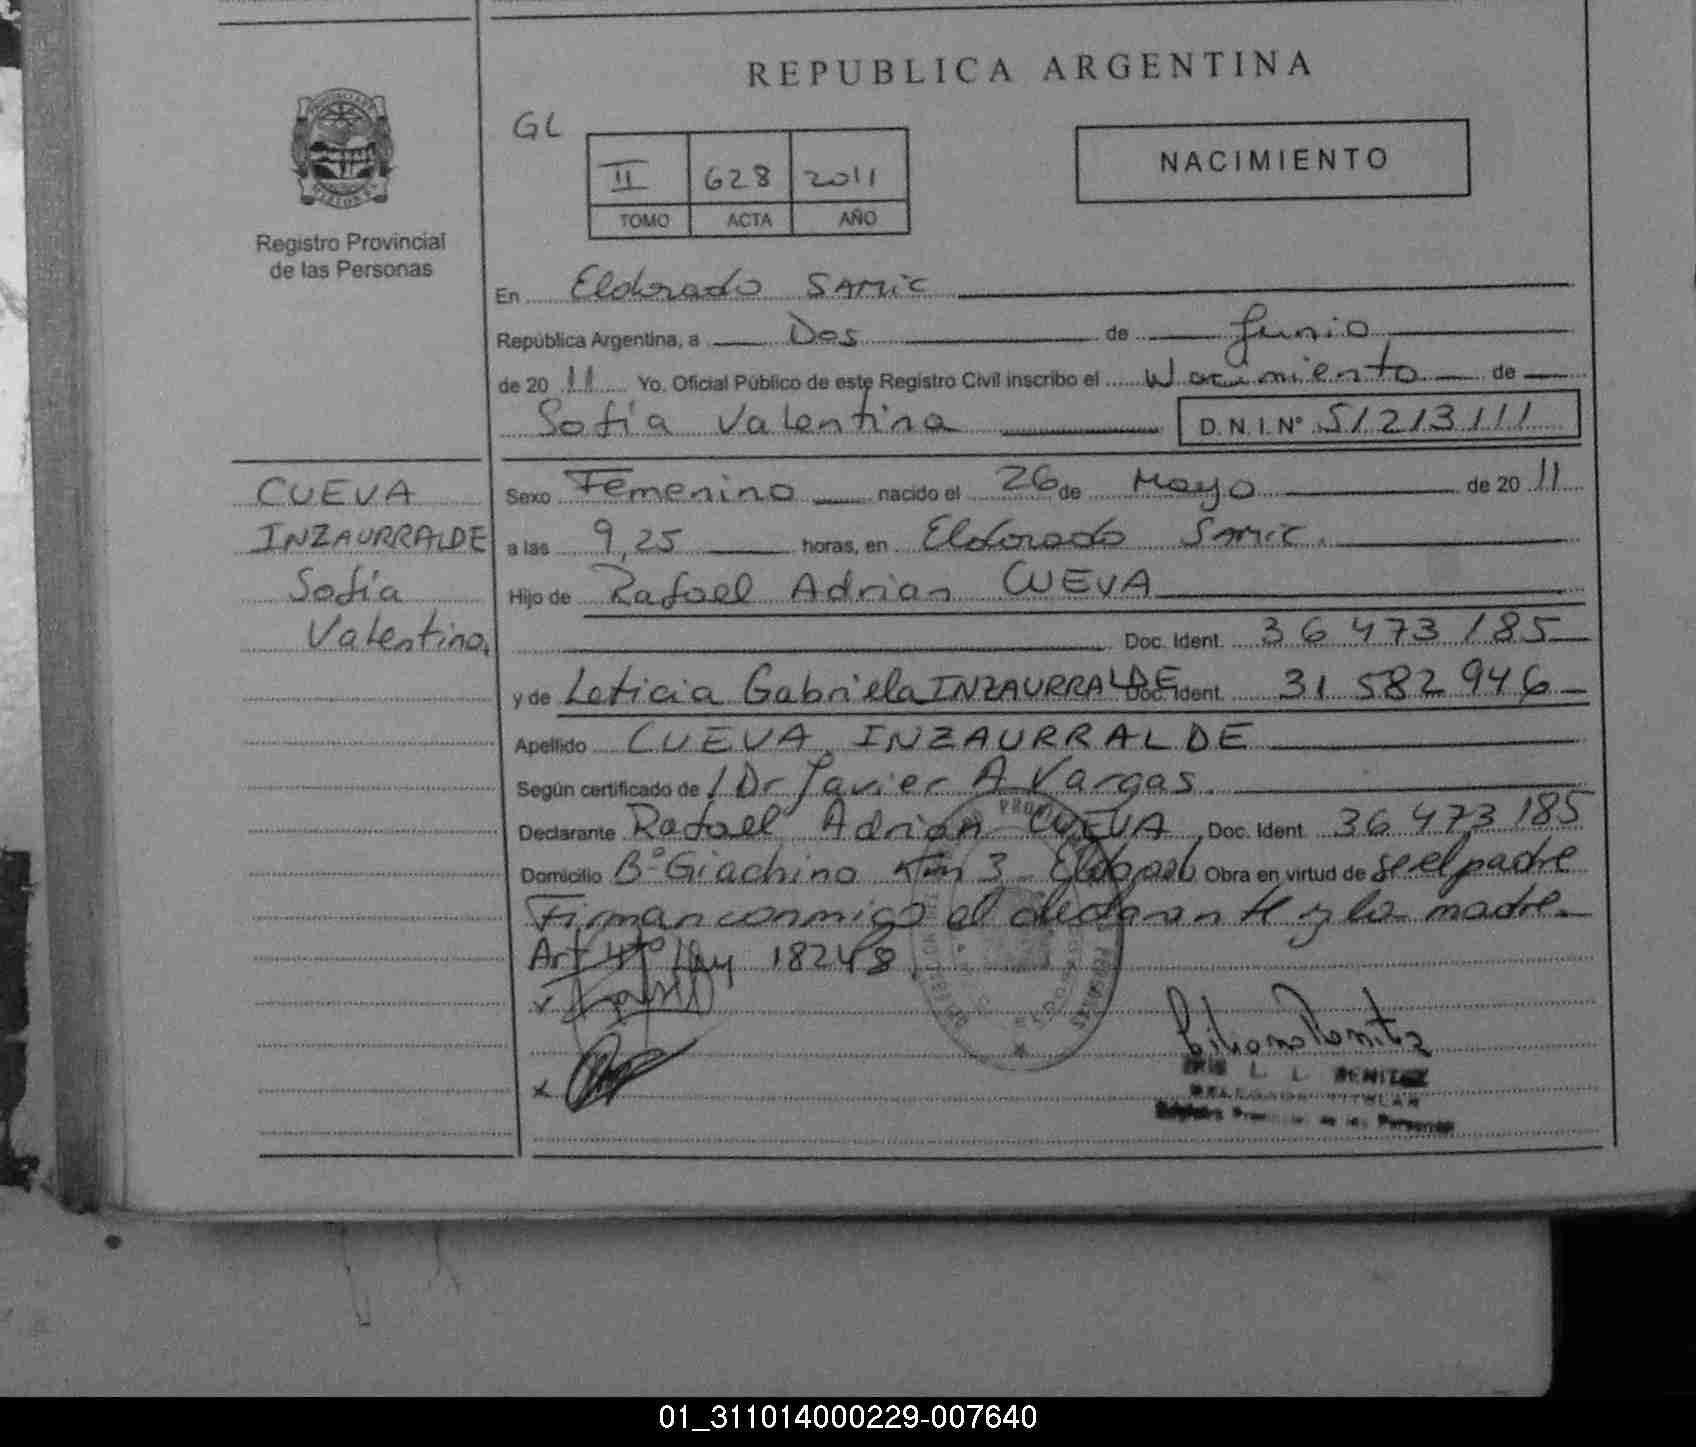 REPUBLICA ARGENTINA
GL
II 628 2011
TOMO ACTA AÑO
NACIMIENTO
Registro Provincial
de las Personas
En Eldorado SAMIC
República Argentina, a Dos de Junio
de 20 11 Yo. Oficial Público de este Registro Civil inscribo el Nacimiento de
Sofía Valentina D.N.I.Nº 51213111
CUEVA
INZAURRALDE
Sofía
Valentina
Sexo Femenino nacido el 26 de Mayo de 20 11
a las 9,25 horas, en Eldorado Samic.
Hijo de Rafael Adrian CUEVA
Doc. Ident. 36 473 185
y de Leticia Gabriela INZAURRALDE Doc. Ident. 31 582 946
Apellido CUEVA INZAURRALDE
Según certificado de / Dr Javier A Vargas.
Declarante Rafael Adrian CUEVA Doc. Ident. 36 473 185
Domicilio Bº Giachino Km 3 Eldorado Obra en virtud de ser el padre
Firman conmigo el declarante y la madre.
Art 4to Ley 18248
x
x
L. L. BENITEZ
DELEGADA TITULAR
Registro Provincial de las Personas
01_311014000229-007640